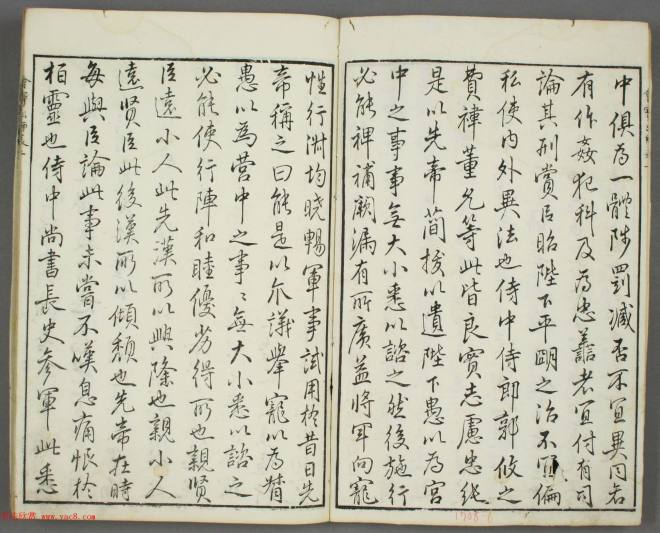 中俱為一體陟罰臧否不宜異同若
有作姦犯科及為忠善者宜付有司
論其刑賞以昭陛下平明之治不宜偏
私使內外異法也侍中侍郎郭攸之
費褘董允等此皆良實志慮忠純
是以先帝簡拔以遺陛下愚以為宮
中之事事無大小悉以諮之然後施行
必能裨補闕漏有所廣益將軍向寵
性行淑均曉暢軍事試用於昔日先
帝稱之曰能是以眾議舉寵以為督
愚以為營中之事〻無大小悉以諮之
必能使行陣和睦優劣得所也親賢
臣遠小人此先漢所以興隆也親小人
遠賢臣此後漢所以傾頹也先帝在時
每與臣論此事未嘗不嘆息痛恨於
桓靈也侍中尚書長史參軍此悉
www.yac8.com